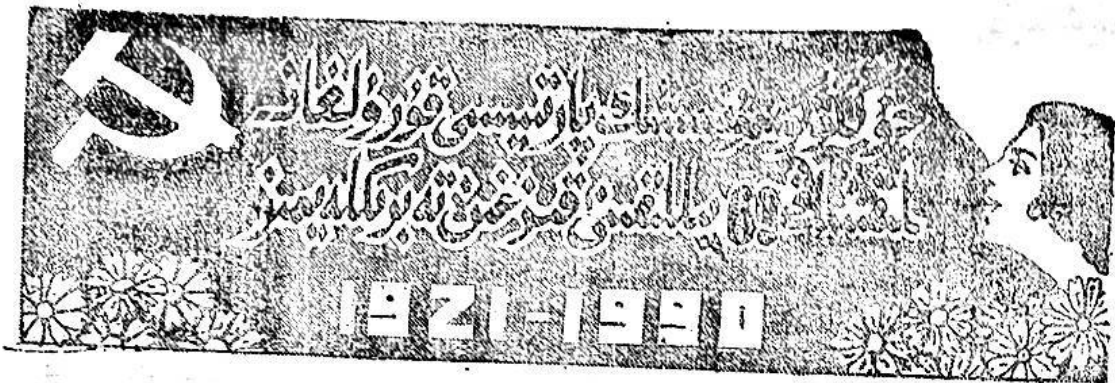 جۇڭگو كوممۇنىستىك پارتىيىسى قۇرۇلغانـ
لىقىنىڭ 69 يىللىقىنى قىزغىن تەبرىكلەيمىز
1921-1990